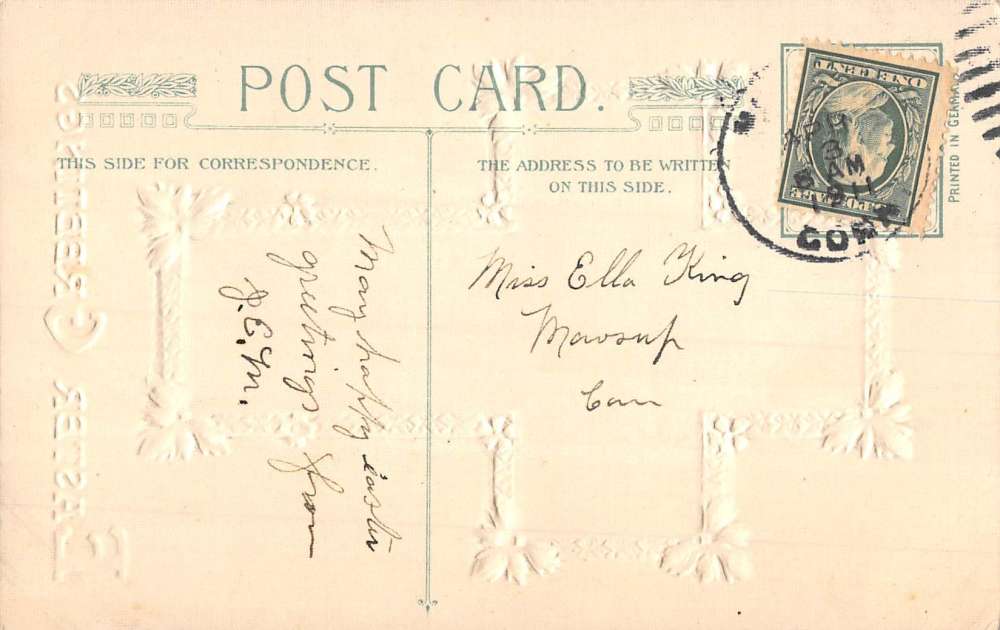 POST CARD.
THIS SIDE FOR CORRESPONDENCE.
THE ADDRESS TO BE WRITTEN
ON THIS SIDE.
PRINTED IN GERMANY
ONE CENT
APR
AM
1911
CONN
Many happy easter
greetings from
J.E.M.
Miss Ella King
Moosup
Conn
EASTER GREETINGS